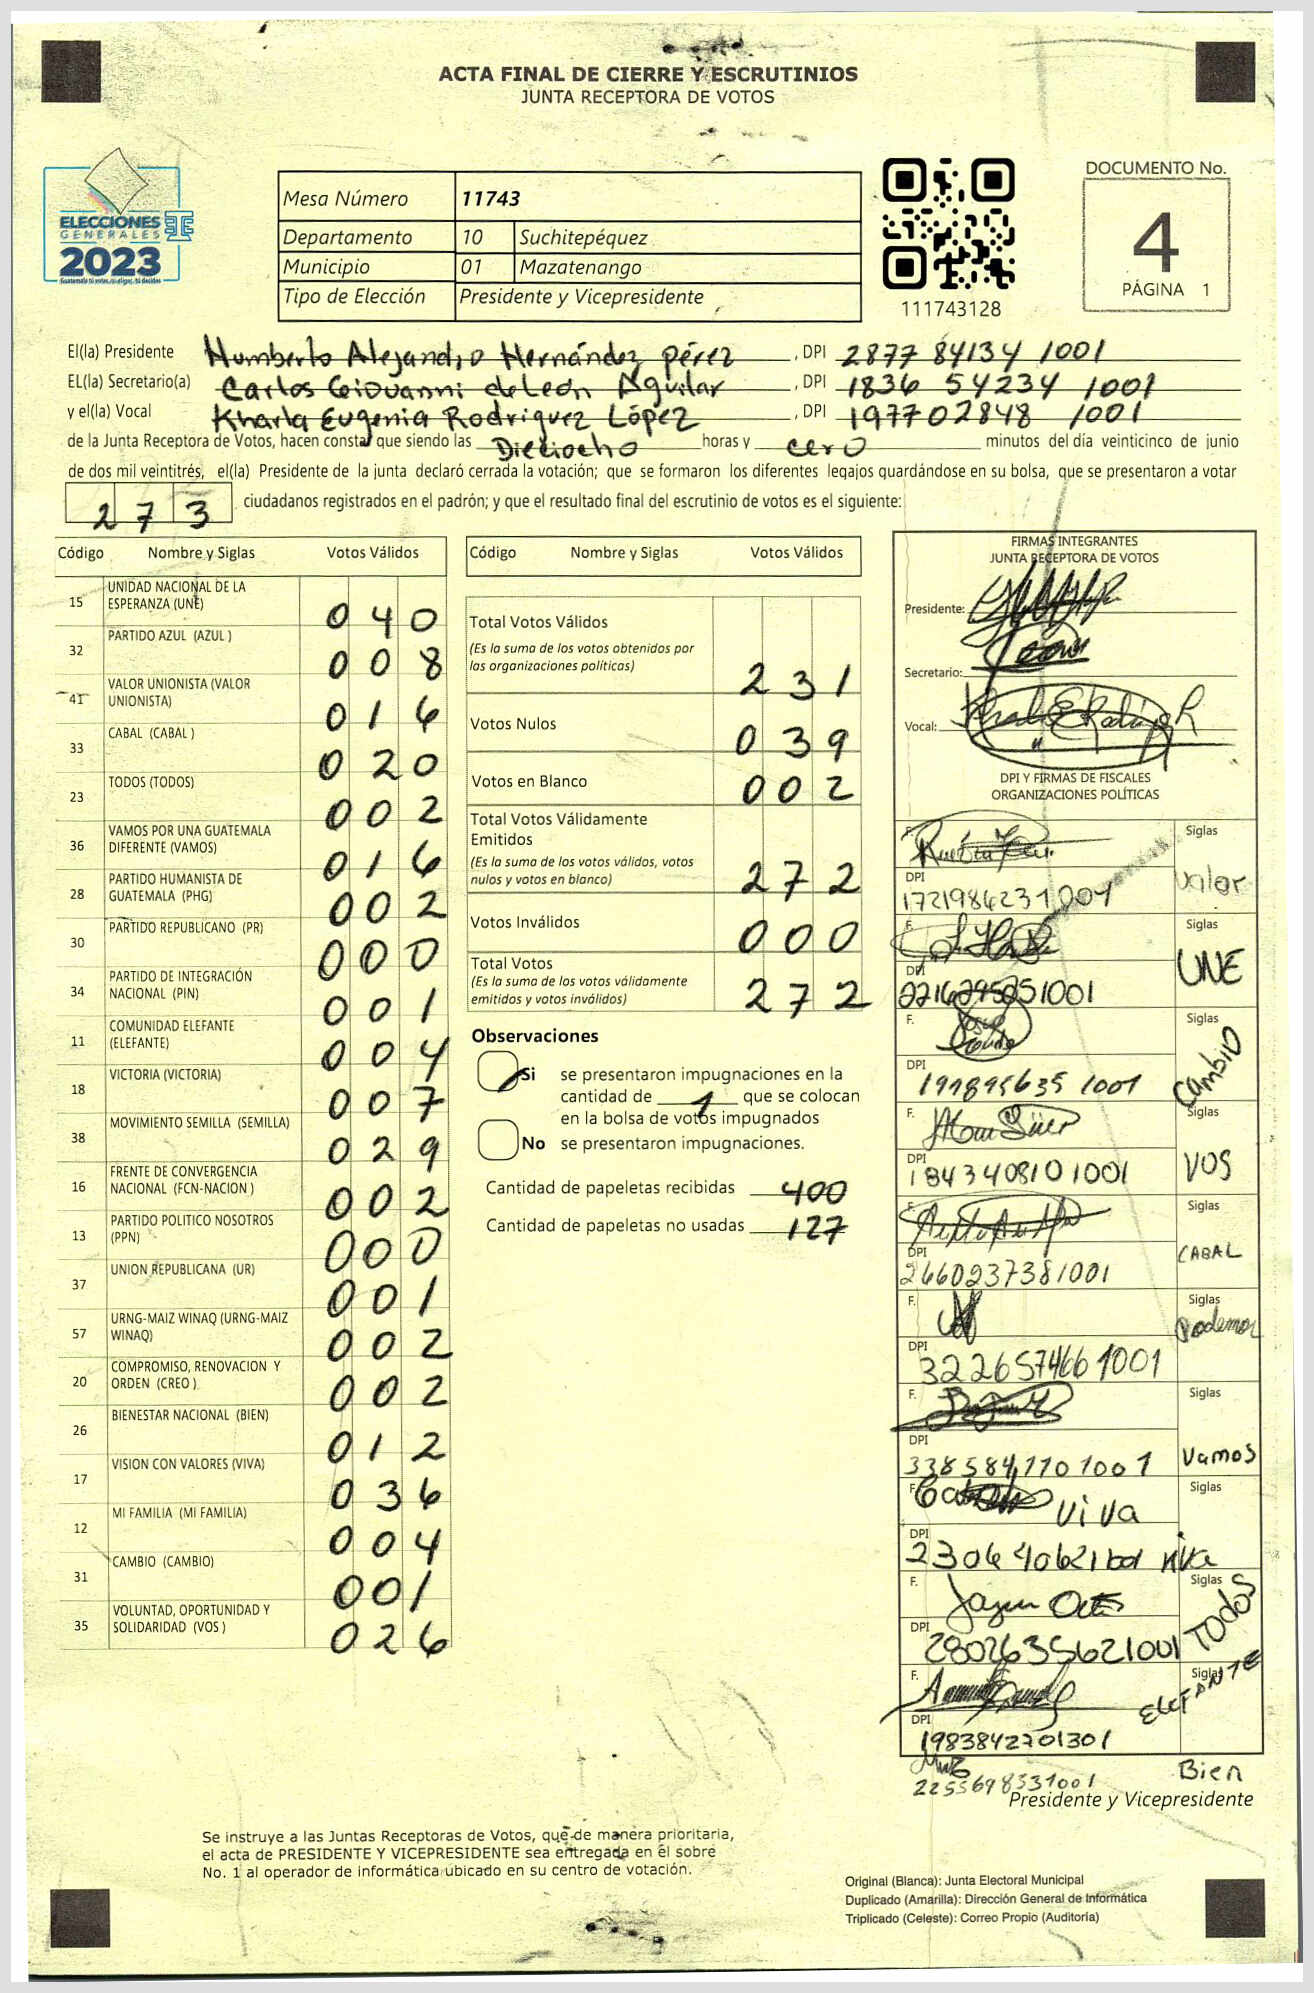 ACTA FINAL DE CIERRE Y ESCRUTINIOS
JUNTA RECEPTORA DE VOTOS
ELECCIONES
GENERALES
2023
Mesa Número 11743
Departamento 10 Suchitepéquez
Municipio 01 Mazatenango
Tipo de Elección Presidente y Vicepresidente
111743128
DOCUMENTO No.
4
PÁGINA 1
El(la) Presidente Humberto Alejandro Hernández pérez , DPI 2877 84134 1001
EL(la) Secretario(a) Carlos Giovanni de León Aguilar , DPI 1836 54234 1001
y el(la) Vocal Kharla Eugenia Rodriguez López , DPI 197702848 1001
de la Junta Receptora de Votos, hacen constar que siendo las Dieciocho horas y cero minutos del día veinticinco de junio
de dos mil veintitrés, el(la) Presidente de la junta declaró cerrada la votación; que se formaron los diferentes legajos guardándose en su bolsa, que se presentaron a votar
273 ciudadanos registrados en el padrón; y que el resultado final del escrutinio de votos es el siguiente:
Código Nombre y Siglas Votos Válidos
15 UNIDAD NACIONAL DE LA ESPERANZA (UNE) 040
32 PARTIDO AZUL (AZUL ) 008
41 VALOR UNIONISTA (VALOR UNIONISTA) 016
33 CABAL (CABAL ) 020
23 TODOS (TODOS) 002
36 VAMOS POR UNA GUATEMALA DIFERENTE (VAMOS) 016
28 PARTIDO HUMANISTA DE GUATEMALA (PHG) 002
30 PARTIDO REPUBLICANO (PR) 000
34 PARTIDO DE INTEGRACIÓN NACIONAL (PIN) 001
11 COMUNIDAD ELEFANTE (ELEFANTE) 004
18 VICTORIA (VICTORIA) 007
38 MOVIMIENTO SEMILLA (SEMILLA) 029
16 FRENTE DE CONVERGENCIA NACIONAL (FCN-NACION ) 002
13 PARTIDO POLITICO NOSOTROS (PPN) 000
37 UNION REPUBLICANA (UR) 001
57 URNG-MAIZ WINAQ (URNG-MAIZ WINAQ) 002
20 COMPROMISO, RENOVACION Y ORDEN (CREO ) 002
26 BIENESTAR NACIONAL (BIEN) 012
17 VISION CON VALORES (VIVA) 036
12 MI FAMILIA (MI FAMILIA) 004
31 CAMBIO (CAMBIO) 001
35 VOLUNTAD, OPORTUNIDAD Y SOLIDARIDAD (VOS ) 026
Código Nombre y Siglas Votos Válidos
Total Votos Válidos
(Es la suma de los votos obtenidos por
las organizaciones políticas) 231
Votos Nulos 039
Votos en Blanco 002
Total Votos Válidamente
Emitidos
(Es la suma de los votos válidos, votos
nulos y votos en blanco) 272
Votos Inválidos 000
Total Votos
(Es la suma de los votos válidamente
emitidos y votos inválidos) 272
Observaciones
Si se presentaron impugnaciones en la
cantidad de 1 que se colocan
en la bolsa de votos impugnados
No se presentaron impugnaciones.
Cantidad de papeletas recibidas 400
Cantidad de papeletas no usadas 127
FIRMAS INTEGRANTES
JUNTA RECEPTORA DE VOTOS
Presidente:
Secretario:
Vocal:
DPI Y FIRMAS DE FISCALES
ORGANIZACIONES POLÍTICAS
F. Siglas
DPI Valor
F. Siglas
DPI UNE
F. Siglas
DPI 191895635 1001 Cambio
F. Siglas
DPI 1843408101001 VOS
F. Siglas
DPI 2660237381001 CABAL
F. Siglas
DPI 3226574661001 Podemos
F. Siglas
DPI Vamos
F. viva Siglas
DPI viva
F. Siglas
DPI 2802635621001 TODOS
F. Siglas
DPI 1983842701301 ELEFANTE
2255698531001 Bien
Presidente y Vicepresidente
Se instruye a las Juntas Receptoras de Votos, que de manera prioritaria,
el acta de PRESIDENTE Y VICEPRESIDENTE sea entregada en el sobre
No. 1 al operador de informática ubicado en su centro de votación.
Original (Blanca): Junta Electoral Municipal
Duplicado (Amarilla): Dirección General de Informática
Triplicado (Celeste): Correo Propio (Auditoría)